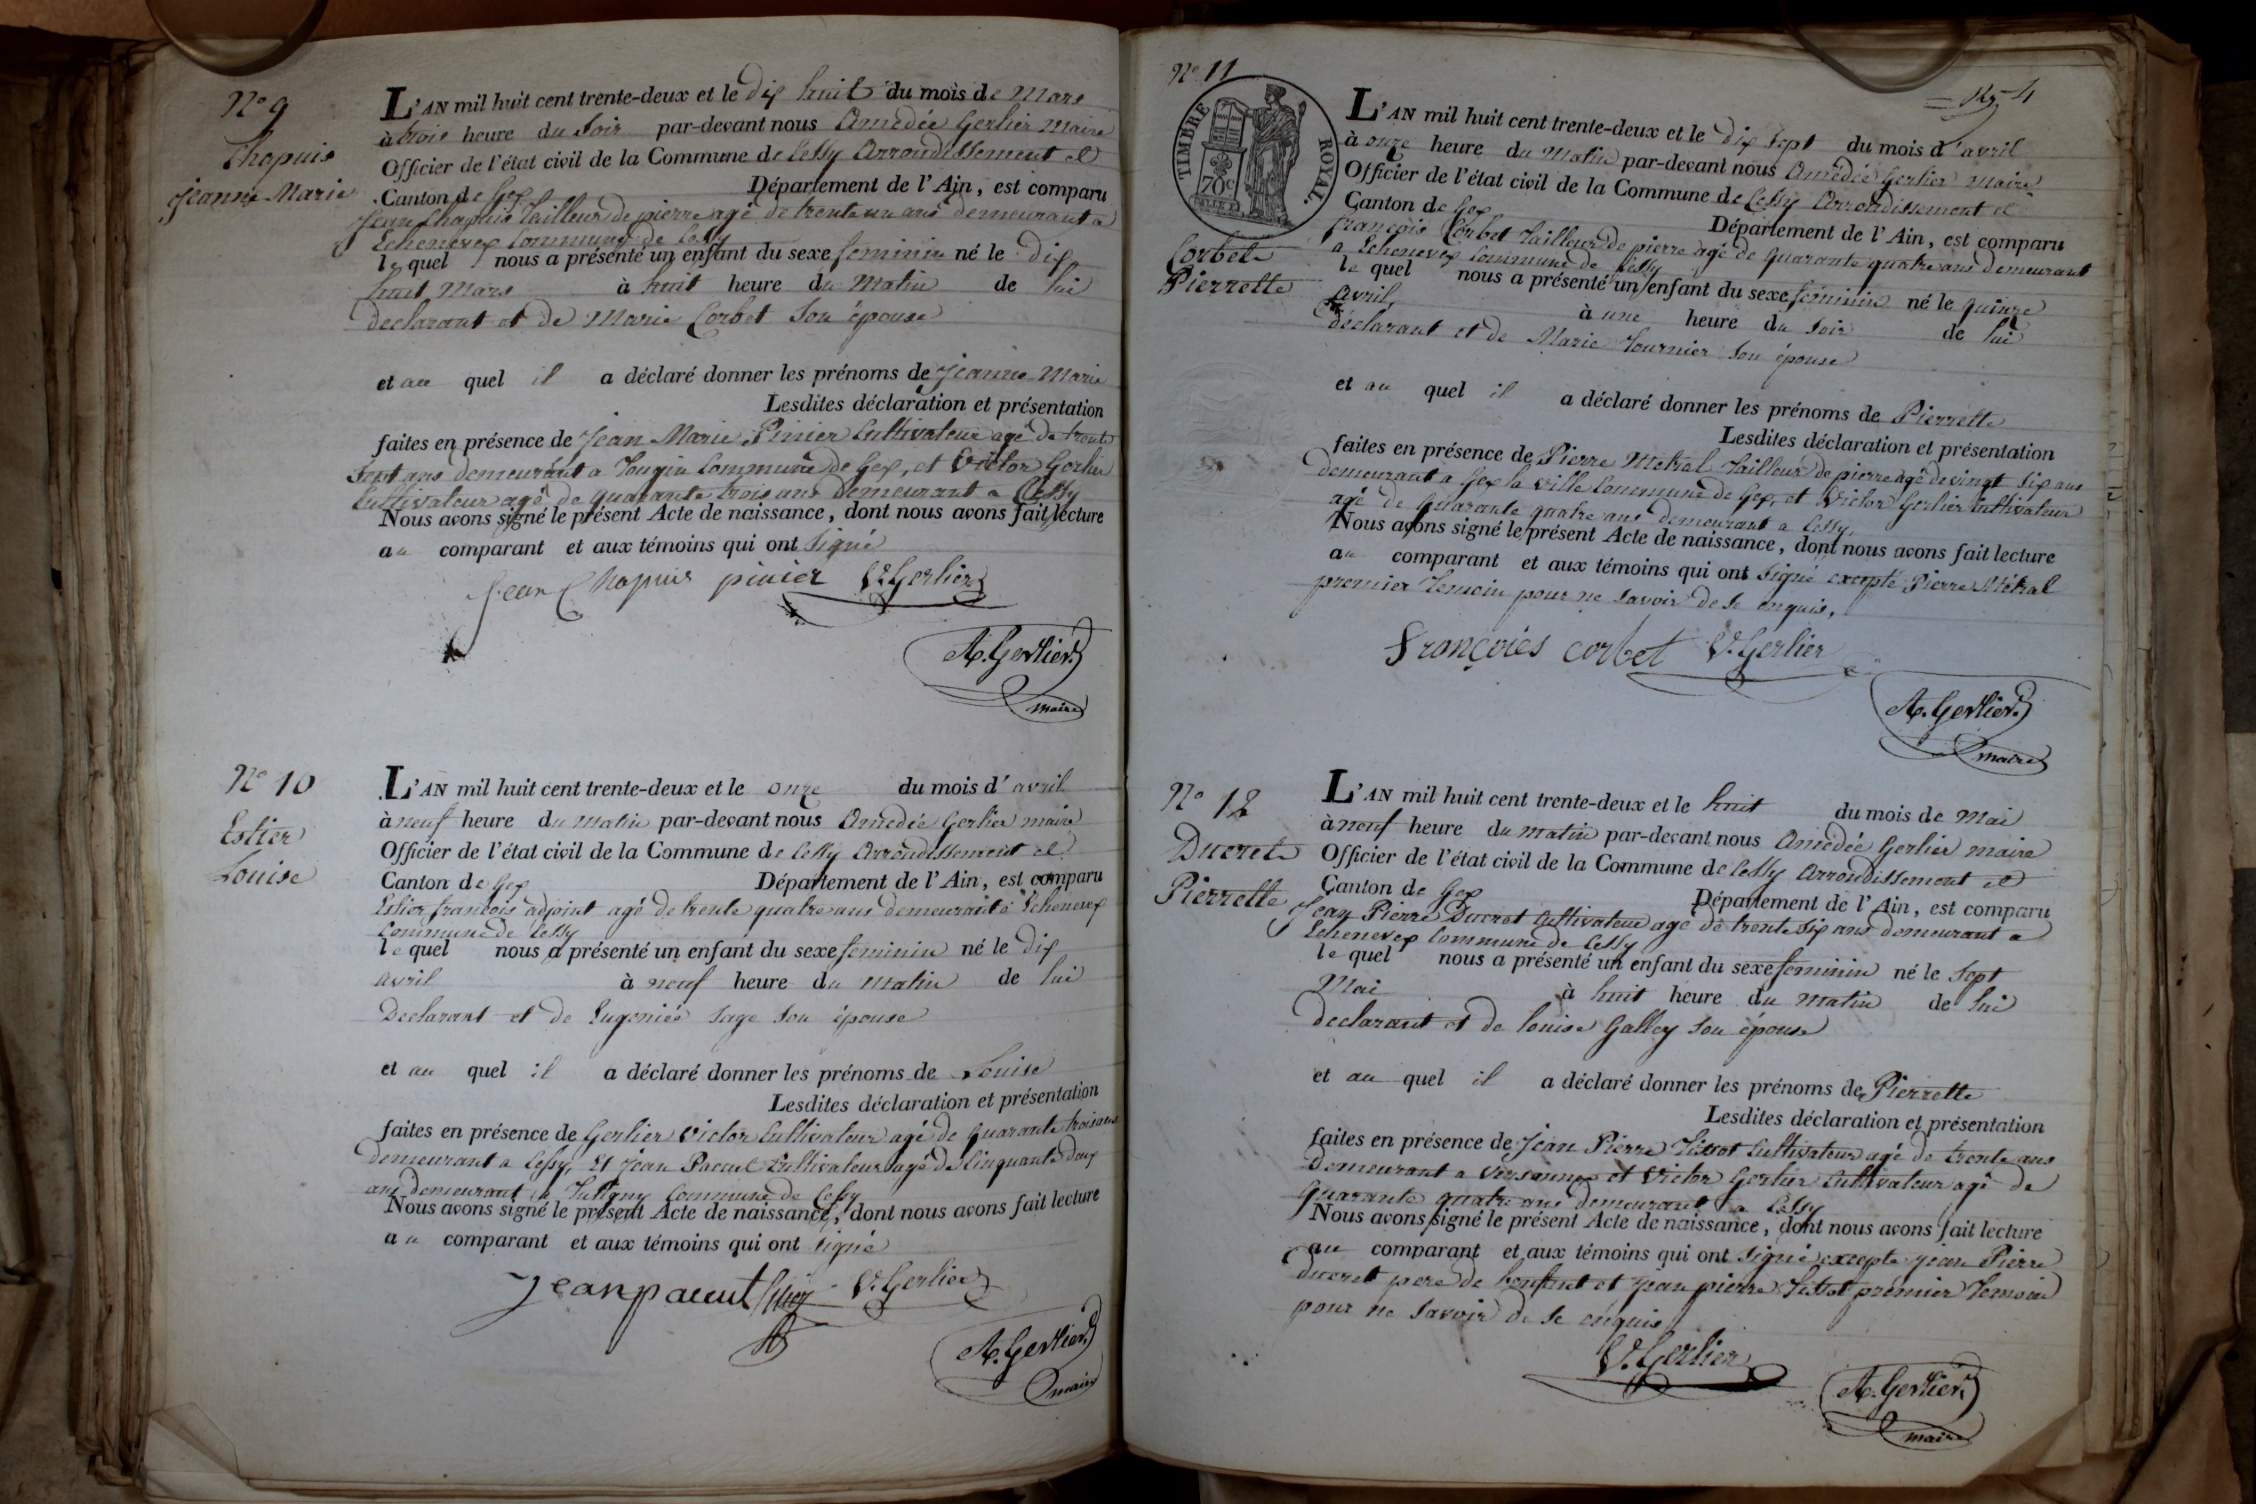 N° 9
Chapuis
Jeanne Marie
L'AN mil huit cent trente-deux et le dix huit du mois de Mars
à trois heure du Soir par-devant nous Amédée Gerlier Maire
Officier de l'état civil de la Commune de Cessy Arrondissement et
Canton de Gex Département de l'Ain, est comparu
Jean Chapuis Tailleur de pierre agé de trente un ans demeurant a
Echenevex Commune de Cessy
le quel nous a présenté un enfant du sexe feminin né le dix
huit Mars à huit heure du Matin de lui
declarant et de Marie Corbet Son épouse
et au quel il a déclaré donner les prénoms de Jeanne Marie
Lesdites déclaration et présentation
faites en présence de Jean Marie Pinier Cultivateur agé de trente
Sept ans demeurant a Tougin Commune de Gex, et Victor Gerlier
Cultivateur agé de quarante trois ans demeurant a Cessy
Nous avons signé le présent Acte de naissance, dont nous avons fait lecture
au comparant et aux témoins qui ont Signé
Jean Chapuis pinier V. Gerlier
A. Gerlier
maire
N° 10
Estier
Louise
L'AN mil huit cent trente-deux et le onze du mois d'avril
à neuf heure du Matin par-devant nous Amédée Gerlier maire
Officier de l'état civil de la Commune de Cessy Arrondissement et
Canton de Gex Département de l'Ain, est comparu
Estier françois adjoint agé de trente quatre ans demeurant a Echenevex
Commune de Cessy
le quel nous a présenté un enfant du sexe feminin né le dix
avril à neuf heure du Matin de lui
Declarant et de Eugeniée Sage Son épouse
et au quel il a déclaré donner les prénoms de Louise
Lesdites déclaration et présentation
faites en présence de Gerlier Victor Cultivateur agé de quarante trois ans
demeurant a Cessy, Et Jean Pacuut Cultivateur agé de Cinquante deux
ans demeurant a Tutigny Commune de Cessy
Nous avons signé le présent Acte de naissance, dont nous avons fait lecture
au comparant et aux témoins qui ont Signé
Jean pacuut Estier V. Gerlier
A. Gerlier
maire
N° 11
4
TIMBRE ROYAL
70c
Corbet
Pierrette
L'AN mil huit cent trente-deux et le dix Sept du mois d'avril
à onze heure du Matin par-devant nous Amédée Gerlier Maire
Officier de l'état civil de la Commune de Cessy Arrondissement et
Canton de Gex Département de l'Ain, est comparu
françois Corbet Tailleur de pierre agé de quarante quatre ans demeurant
a Echenevex Commune de Cessy
le quel nous a présenté un enfant du sexe féminin né le quinze
Avril, à une heure du Soir de lui
déclarant et de Marie Tournier Son épouse
et au quel il a déclaré donner les prénoms de Pierrette
Lesdites déclaration et présentation
faites en présence de Pierre Metral Tailleur de pierre agé de vingt Six ans
demeurant a Gex la ville Commune de Gex, et Victor Gerlier Cultivateur
agé de quarante quatre ans demeurant a Cessy,
Nous avons signé le présent Acte de naissance, dont nous avons fait lecture
au comparant et aux témoins qui ont Signé excepté Pierre Métral
premier Temoin pour ne Savoir de Se enquis,
François corbet V. Gerlier
A. Gerlier
maire
N° 12
Ducret
Pierrette
L'AN mil huit cent trente-deux et le huit du mois de Mai
à neuf heure du matin par-devant nous Amédée Gerlier maire
Officier de l'état civil de la Commune de Cessy Arrondissement et
Canton de Gex Département de l'Ain, est comparu
Jean Pierre Ducret Cultivateur agé de trente Six ans demeurant a
Echenevex Commune de Cessy
le quel nous a présenté un enfant du sexe feminin né le Sept
Mai à huit heure du Matin de lui
declarant et de Louise Galley Son épouse
et au quel il a déclaré donner les prénoms de Pierrette
Lesdites déclaration et présentation
faites en présence de Jean Pierre Tissot Cultivateur agé de trente ans
Demeurant a Versonnex et Victor Gerlier Cultivateur agé de
quarante quatre ans demeurant a Cessy
Nous avons signé le présent Acte de naissance, dont nous avons fait lecture
au comparant et aux témoins qui ont Signé excepté Jean Pierre
Ducret pere de lenfant et Jean pierre Tissot premier Temoin
pour ne Savoir de Se enquis
V. Gerlier
A. Gerlier
maire